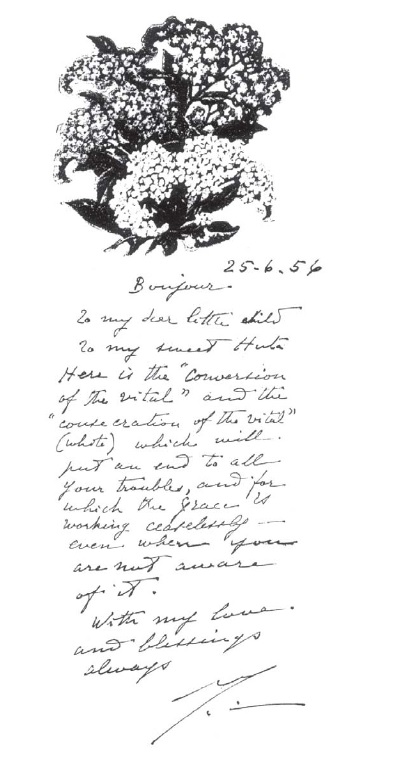 25-6.56
Bonjour.
To my dear little child
To my sweet Huta
Here is the "conversion
of the vital" and the
"consecration of the vital"
(white) which will
put an end to all
your troubles, and for
which the Grace is
working ceaselessly —
even when you
are not aware
of it.
With my love
and blessings
always